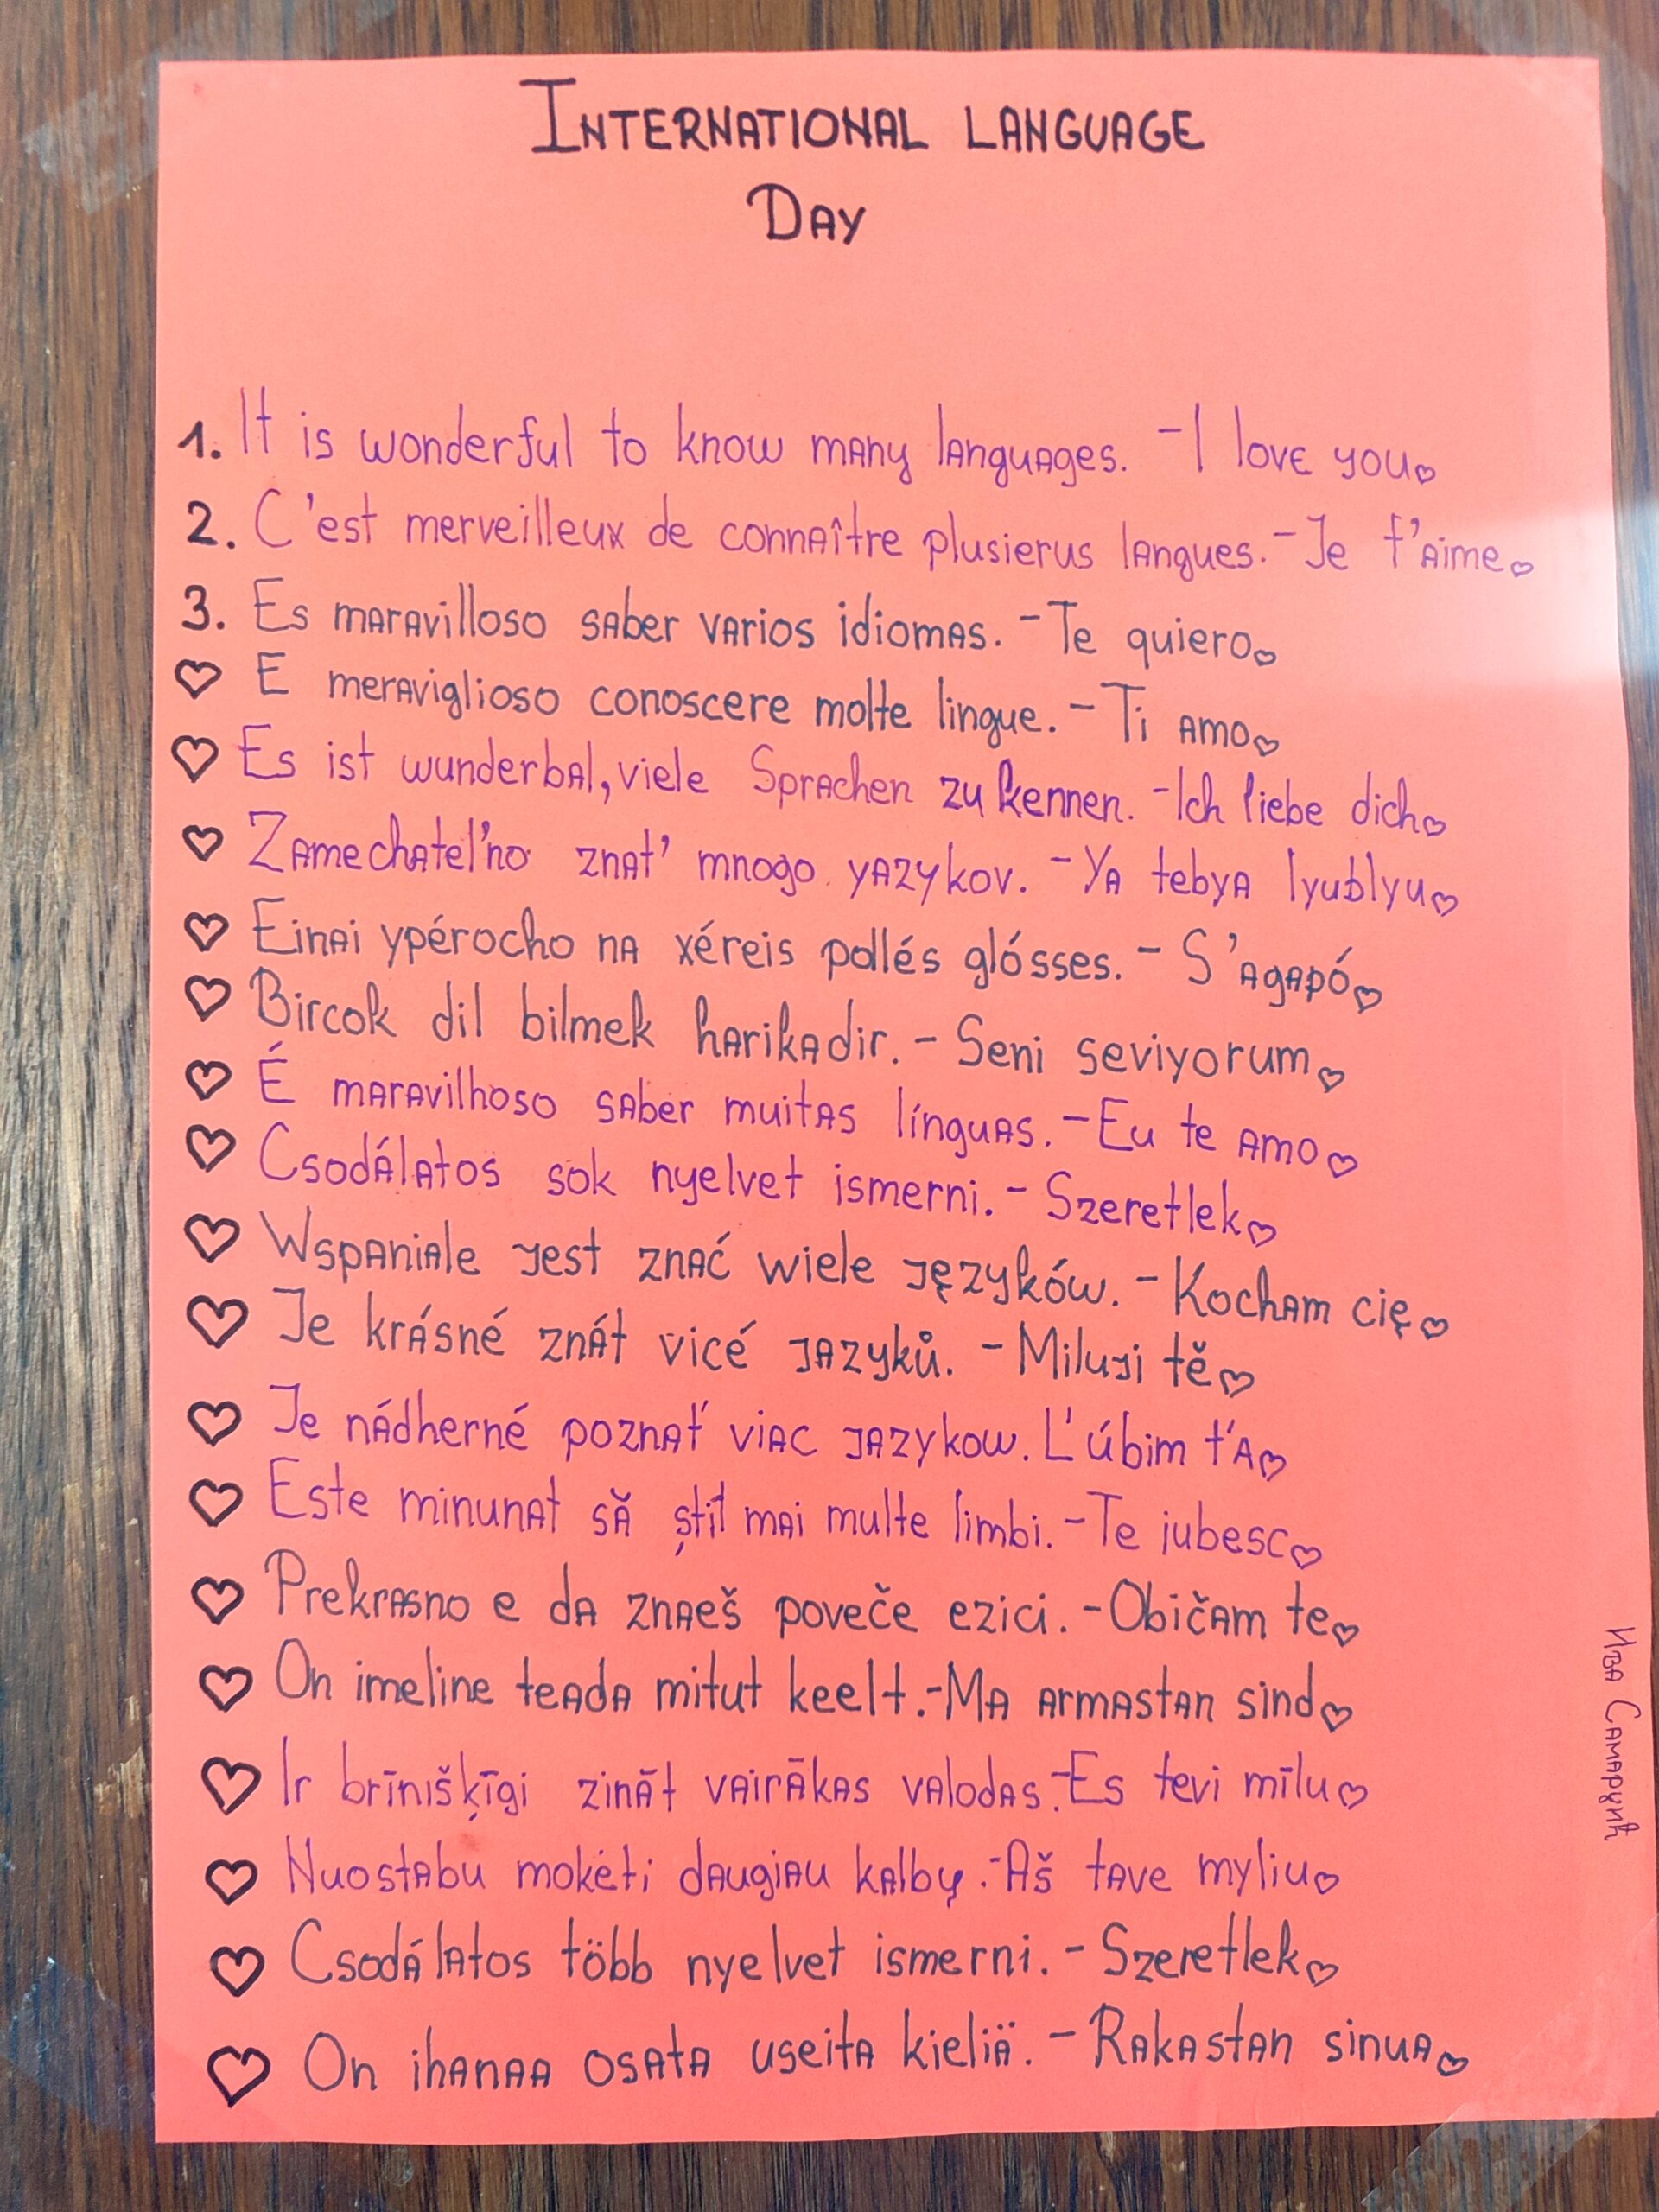 INTERNATIONAL LANGUAGE
DAY
1. It is wonderful to know many languages. - I love you
2. C'est merveilleux de connaître plusierus langues. - Je t'aime
3. Es maravilloso saber varios idiomas. - Te quiero
E meraviglioso conoscere molte lingue. - Ti amo
Es ist wunderbal, viele Sprachen zu kennen. - Ich liebe dich
Zamechatel'no znat' mnogo yazykov. - Ya tebya lyublyu
Einai ypérocho na xéreis pollés glósses. - S'agapó
Bircok dil bilmek harikadir. - Seni seviyorum
É maravilhoso saber muitas línguas. - Eu te amo
Csodálatos sok nyelvet ismerni. - Szeretlek
Wspaniale jest znać wiele języków. - Kocham cię
Je krásné znát vicé jazyků. - Miluji tě
Je nádherné poznať viac jazykow. Ľúbim ťa
Este minunat să știt mai multe limbi. - Te iubesc
Prekrasno e da znaeš poveče ezici. - Običam te
On imeline teada mitut keelt. - Ma armastan sind
Ir brīnišķīgi zināt vairākas valodas. - Es tevi mīlu
Nuostabu mokėti daugiau kalbų. - Aš tave myliu
Csodálatos több nyelvet ismerni. - Szeretlek
On ihanaa osata useita kieliä. - Rakastan sinua
Ива Самарџић